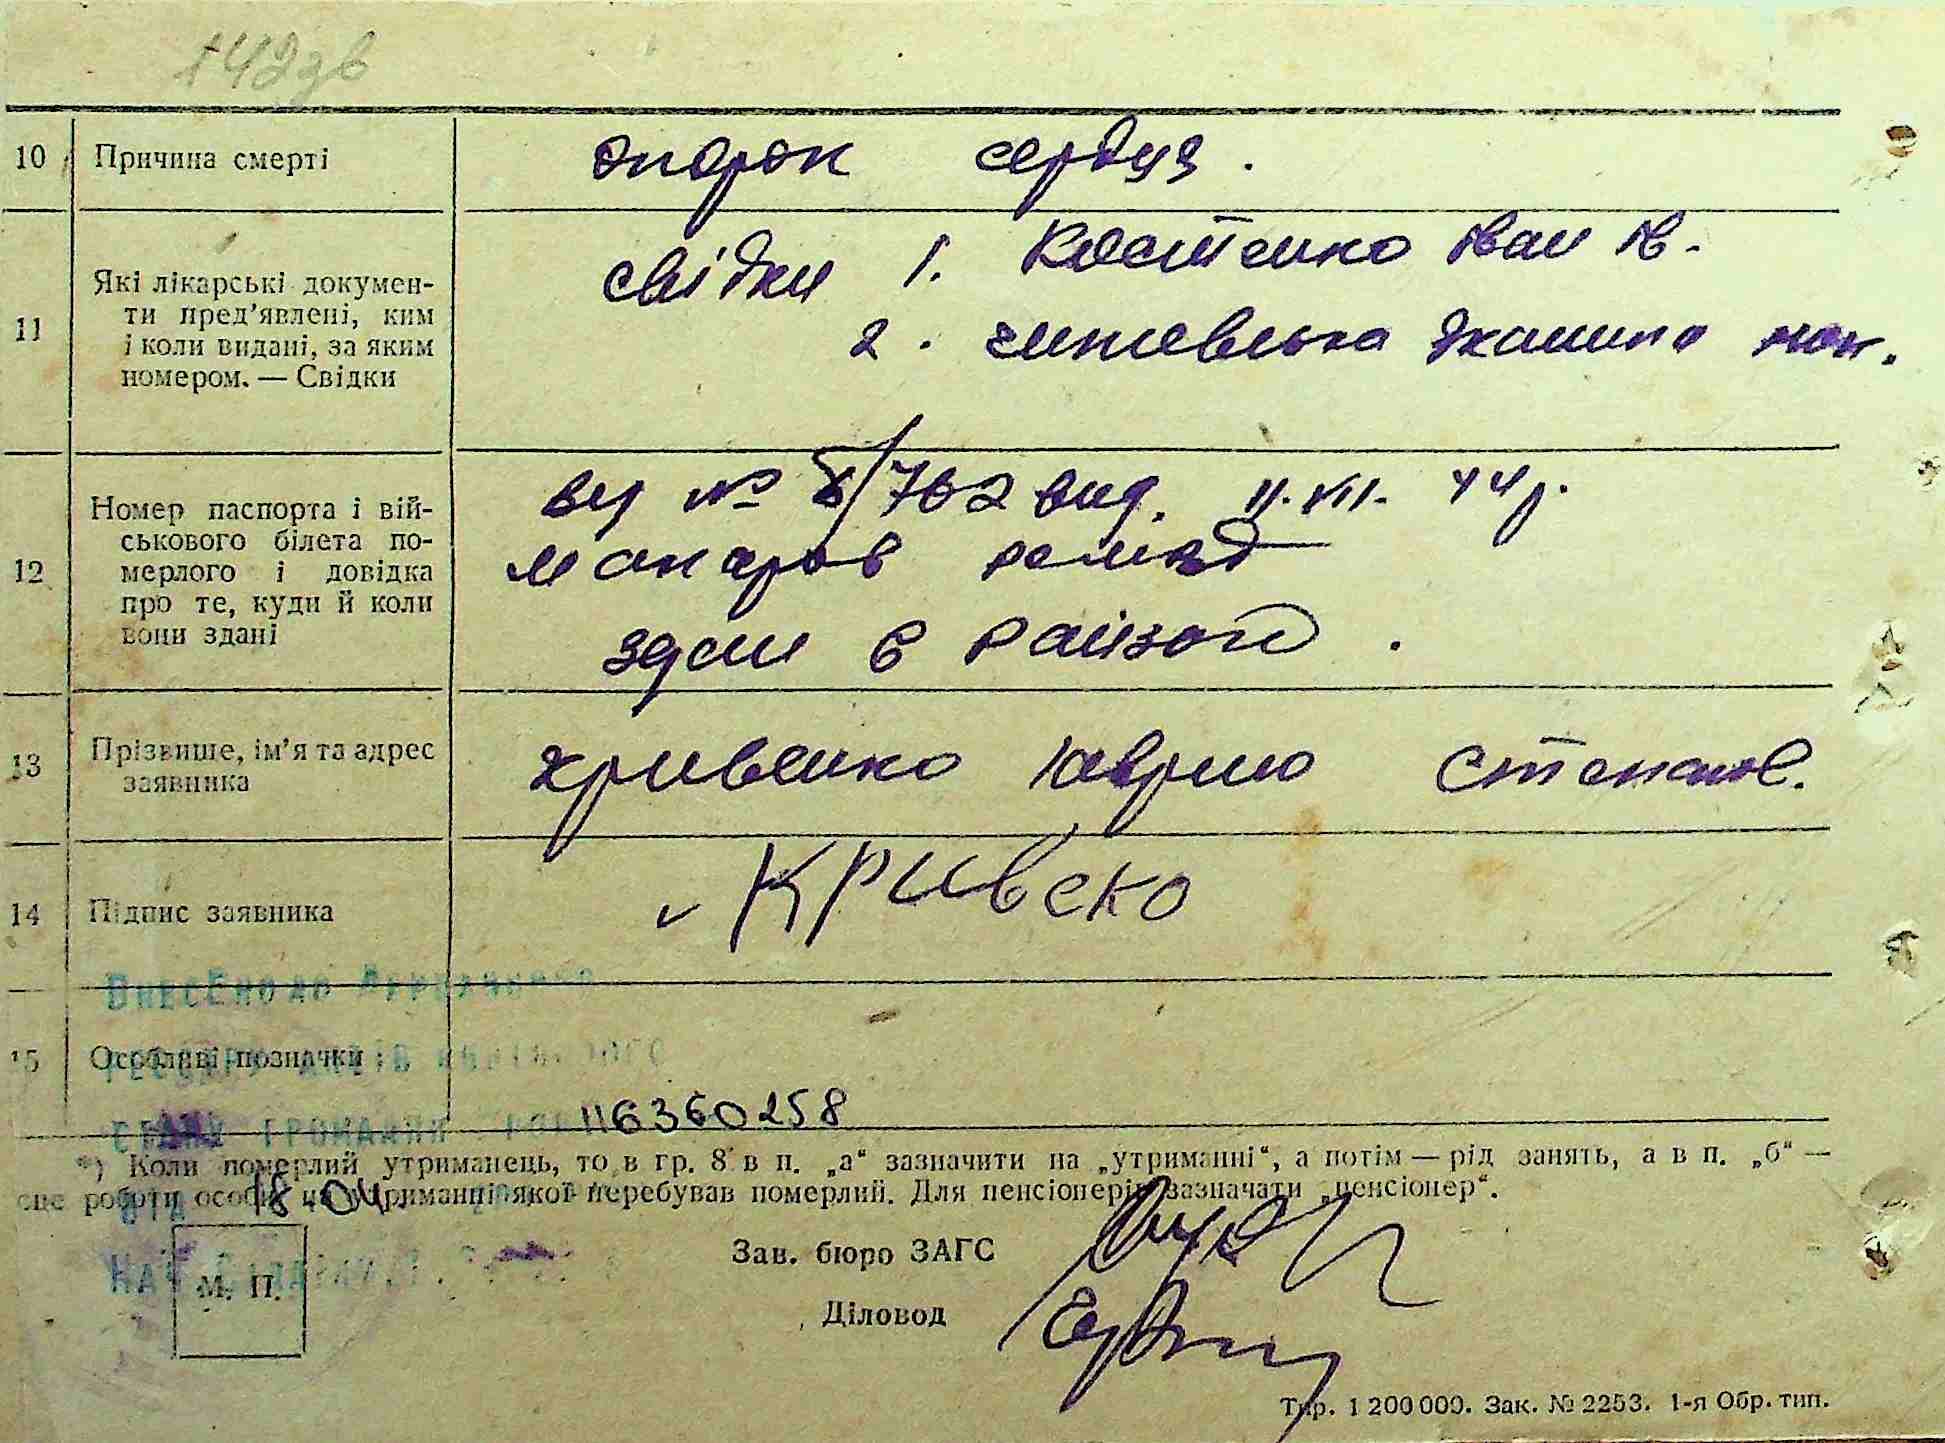 142зв
10 Причина смерті
порок сердця.
11 Які лікарські докумен-
ти пред'явлені, ким
і коли видані, за яким
номером. — Свідки
свідки 1. Костенко Іван Ів.
2.
12 Номер паспорта і вій-
ськового білета по-
мерлого і довідка
про те, куди й коли
вони здані
№ 8/762 вид. 11.VII. 44 р.
Макаров
здан в
13 Прізвище, ім'я та адрес
заявника
Кривенко Степанов.
14 Підпис заявника
Кривеко
ВНЕСЕНО ДО ДЕРЖАВНОГО
15 Особливі позначки
РЕЄСТРУ АКТІВ ЦИВІЛЬНОГО
СТАНУ ГРОМАДЯН
116360258
*) Коли померлий утриманець, то в гр. 8 в п. „а“ зазначити на „утриманні“, а потім — рід занять, а в п. „б“ —
сце роботи особи, на утриманні якої перебував померлий. Для пенсіонерів зазначати „пенсіонер“.
18 04
Зав. бюро ЗАГС
М. П.
Діловод
Тир. 1 200 000. Зак. № 2253. 1-я Обр. тип.